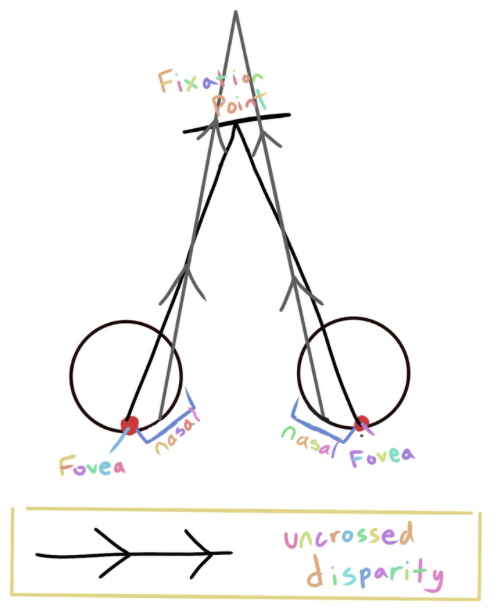 Fixation
Point
nasal
nasal
Fovea
Fovea
uncrossed
disparity